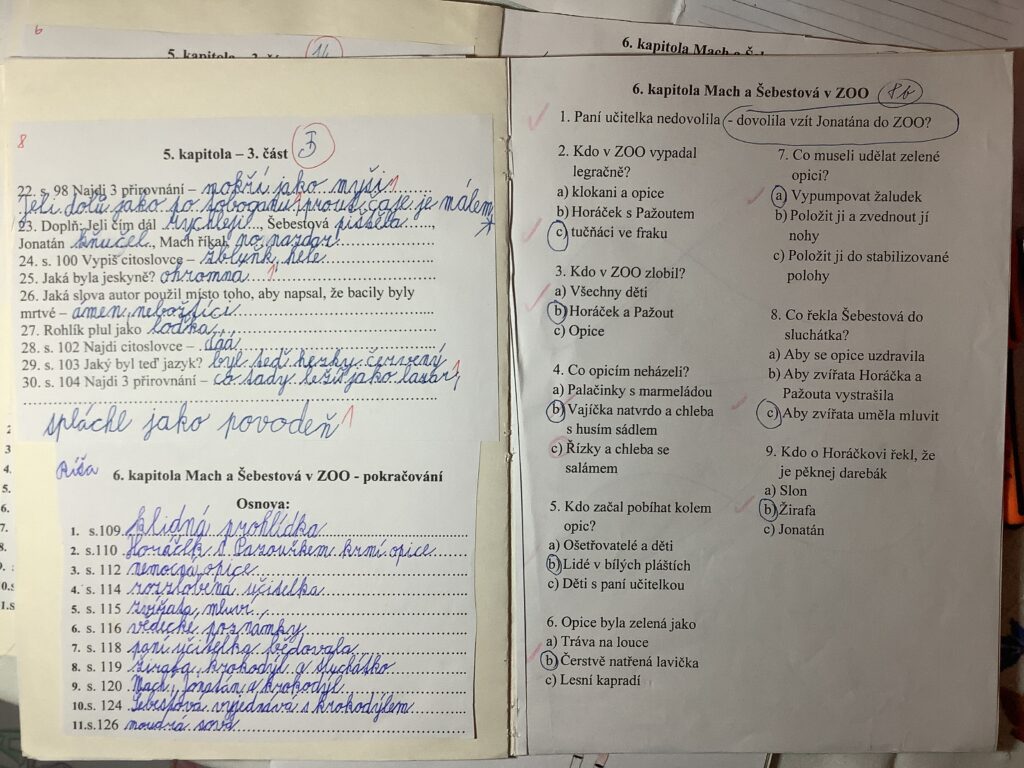 6
5. kapitola
14
6. kapitola Mach a
8
5. kapitola – 3. část
22. s. 98 Najdi 3 přirovnání – mokří jako myši
jeli dolů jako po toboganu, proud čaje je málem
23. Doplň: Jeli čím dál rychleji, Šebestová pištěla,
Jonatán kňučel, Mach říkal po nazdar
24. s. 100 Vypiš citoslovce – zblyňk, hele
25. Jaká byla jeskyně? ohromná
26. Jaká slova autor použil místo toho, aby napsal, že bacily byly
mrtvé – ámen, nebožtíci
27. Rohlík plul jako loďka
28. s. 102 Najdi citoslovce – ááá
29. s. 103 Jaký byl teď jazyk? byl teď hezky červený
30. s. 104 Najdi 3 přirovnání – co tady ležíš jako lazar,
spláchl jako povodeň
Ríša
6. kapitola Mach a Šebestová v ZOO - pokračování
Osnova:
1. s.109 klidná prohlídka
2. s.110 Horáček s Pažoutkem krmí opice
3. s. 112 nemocná opice
4. s. 114 rozzlobená učitelka
5. s. 115 zvířata mluví
6. s. 116 vědecké poznámky
7. s. 118 paní učitelka bědovala
8. s. 119 žirafa, krokodýl a sluchátko
9. s. 120 Mach, Jonatán a krokodýl
10.s. 124 Šebestová vyjednává s krokodýlem
11.s.126 moudrá sova
6. kapitola Mach a Šebestová v ZOO
1. Paní učitelka nedovolila - dovolila vzít Jonatána do ZOO?
2. Kdo v ZOO vypadal
legračně?
a) klokani a opice
b) Horáček s Pažoutem
c) tučňáci ve fraku
3. Kdo v ZOO zlobil?
a) Všechny děti
b) Horáček a Pažout
c) Opice
4. Co opicím neházeli?
a) Palačinky s marmeládou
b) Vajíčka natvrdo a chleba
s husím sádlem
c) Řízky a chleba se
salámem
5. Kdo začal pobíhat kolem
opic?
a) Ošetřovatelé a děti
b) Lidé v bílých pláštích
c) Děti s paní učitelkou
6. Opice byla zelená jako
a) Tráva na louce
b) Čerstvě natřená lavička
c) Lesní kapradí
7. Co museli udělat zelené
opici?
a) Vypumpovat žaludek
b) Položit ji a zvednout jí
nohy
c) Položit ji do stabilizované
polohy
8. Co řekla Šebestová do
sluchátka?
a) Aby se opice uzdravila
b) Aby zvířata Horáčka a
Pažouta vystrašila
c) Aby zvířata uměla mluvit
9. Kdo o Horáčkovi řekl, že
je pěknej darebák
a) Slon
b) Žirafa
c) Jonatán